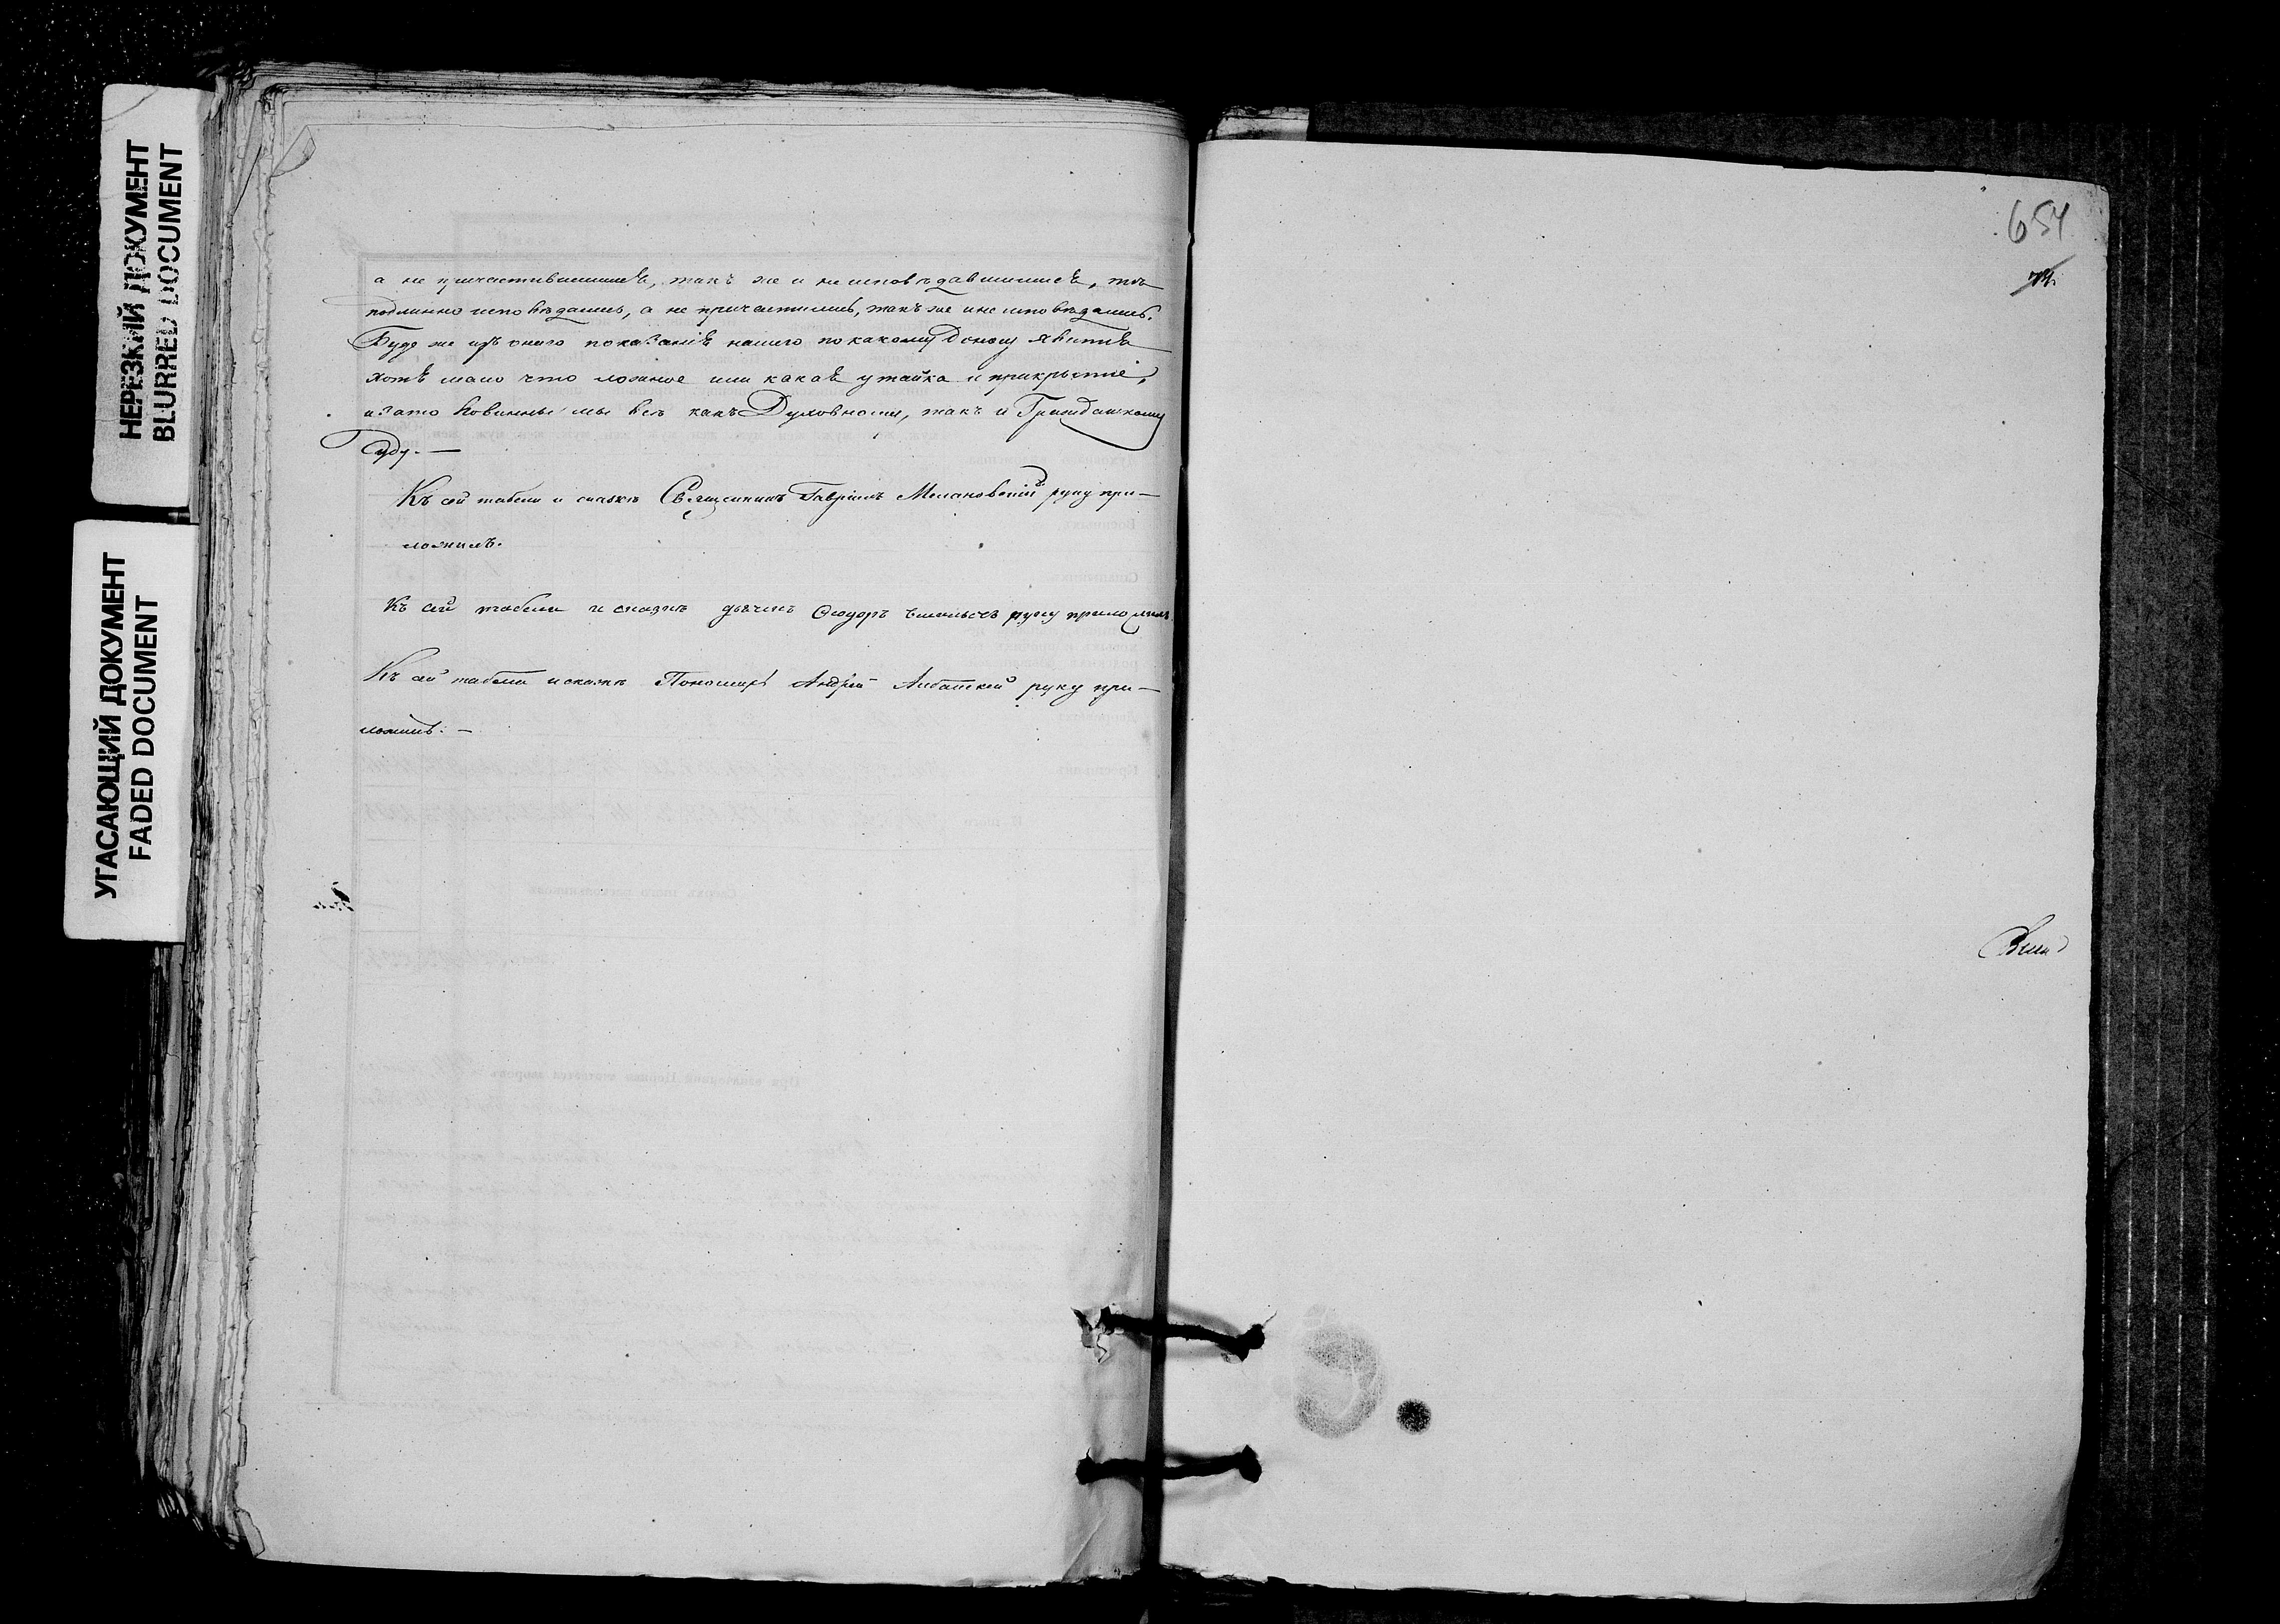 НЕРЕЗКИЙ ДОКУМЕНТ
BLURRED DOCUMENT
УГАСАЮЩИЙ ДОКУМЕНТ
FADED DOCUMENT
а не причастившиися, такъ же и неисповѣдавшиися, тѣ
подлинно исповѣдались, а не причастились, такъ же и не исповѣдались.
Буде же изъ онаго показанія нашего по какому доносу явится
хотя мало что ложное или какая утайка и прикрытіе,
и за то повинны мы всѣ какъ Духовному, такъ и Гражданскому
Суду. —
Къ сей табели и сказкѣ Священникъ Гавріилъ Мелановскій руку при—
ложилъ.
Къ сей табели и сказкѣ дьячекъ Ѳеодоръ руку приложилъ
Къ сей табели и сказкѣ Пономарь Андрей руку при—
ложилъ. —
654